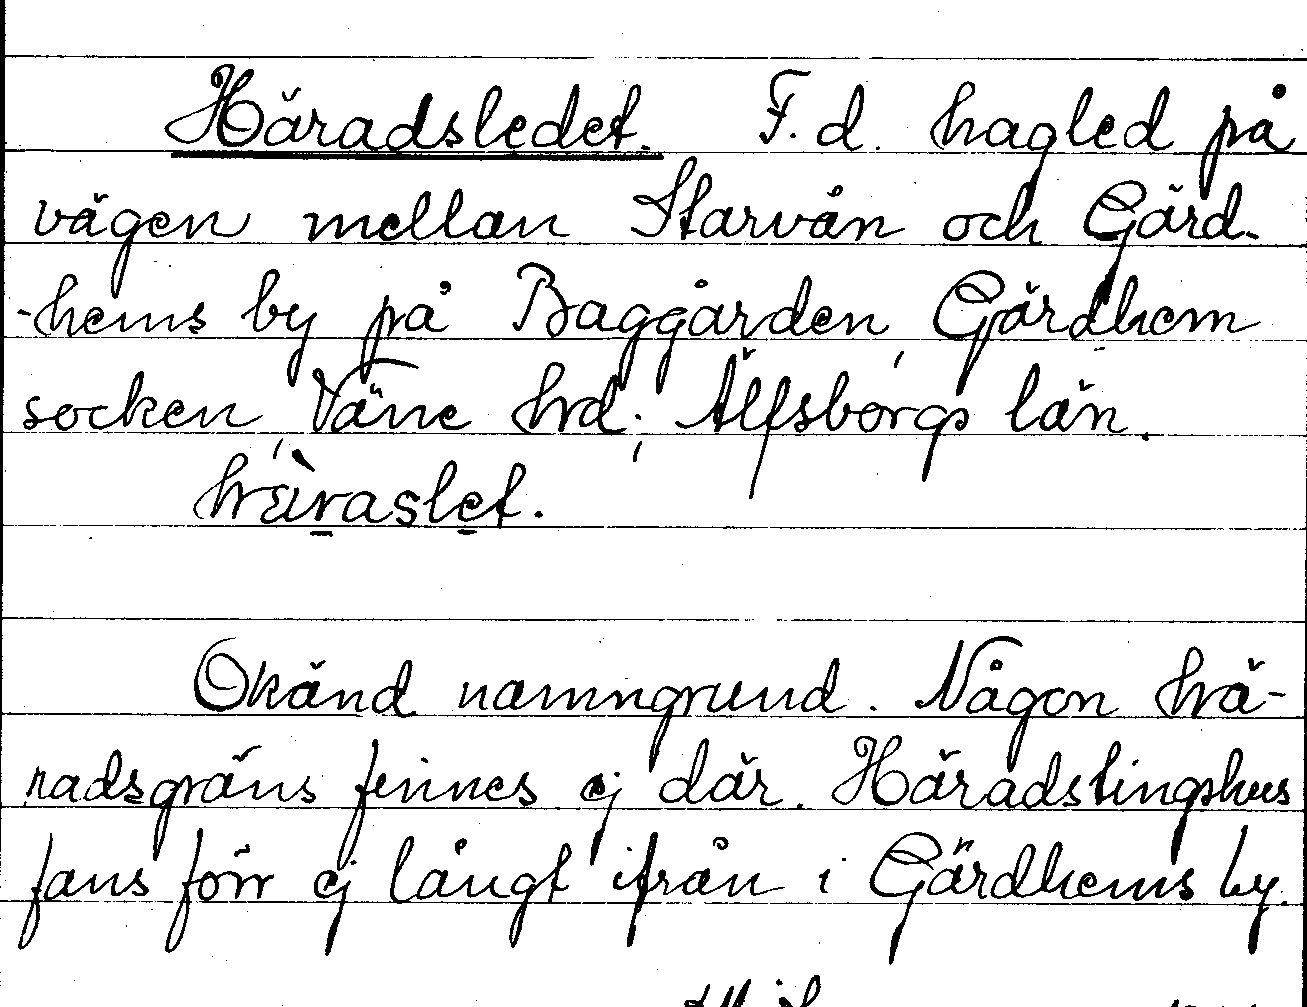 Häradsledet. F.d. hagled på
vägen mellan Starvån och Gärd-
-hems by på Baggården, Gärdhem
socken, Väne hrd; Älfsborgs län.
häraslet.
Okänd namngrund. Någon hä-
radsgräns finnes ej där. Häradstingshus
fans förr ej långt ifrån i Gärdhems by.